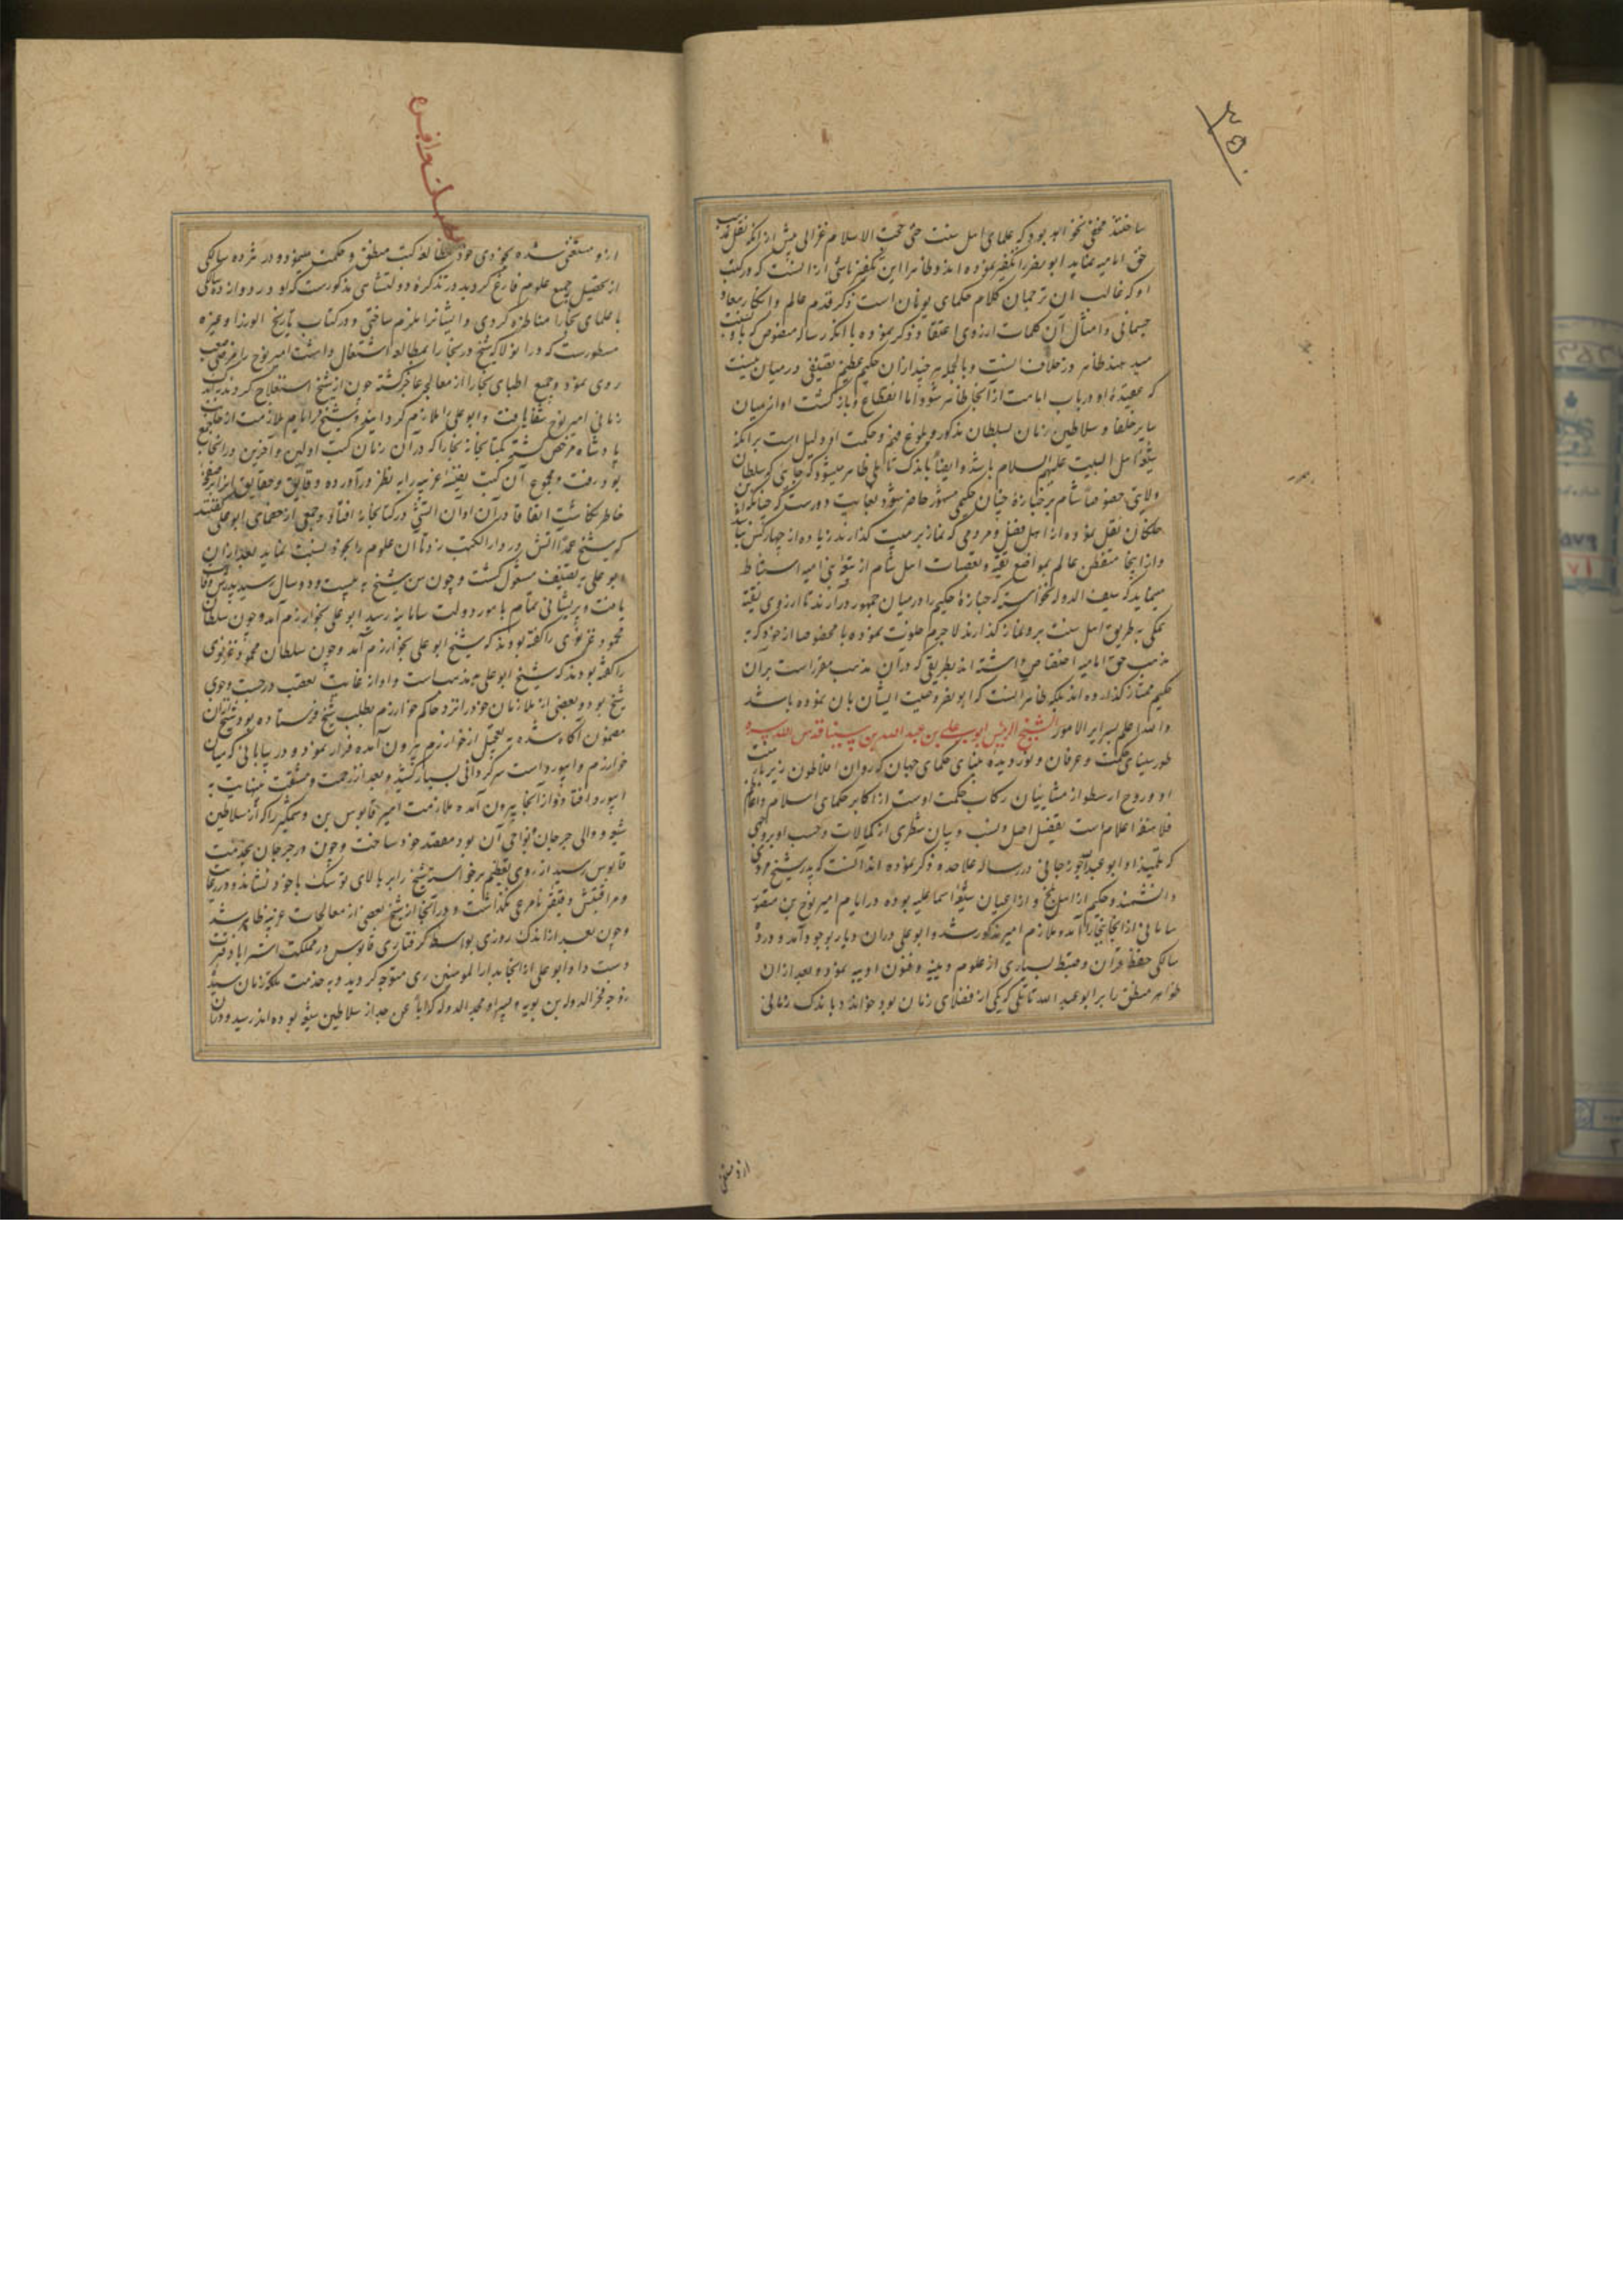 ۲۵۰
ساختند مخفی نخواهد بود که علمای اهل سنت حتی حجت الاسلام غزالی پیش از آنکه نقل بمذهب
حق امامیه نماید ابو نصر را تکفیر نموده اند و ظاهرا این تکفیر ناشی از آنست که در کتب
او که غالب آن ترجمان کلام حکمای یونان است ذکر قدم عالم و انکار معاد
جسمانی و امثال آن کلمات از روی اعتقاد ذکر نموده با آنکه رساله منصوص که باو نسبت
میدهند ظاهر در خلاف آنست و بالجمله هر چند از آن حکیم عظیم تصنیفی در میان نیست
که عقیدهٔ او در باب امامت از آنجا ظاهر شود اما انقطاع و بازگشت او از میان
سایر خلفا و سلاطین زمان بسلطان مذکور و بلوغ فهم و حکمت او دلیل است بر آنکه
شیعهٔ اهل البیت علیهم السلام باشد و ایضاً باندک تأملی ظاهر میشود که جائی که سلطان
ولایتی خصوصاً شام بر جنازهٔ چنان حکیمی مشهور حاضر شود بغایت دور است که چنانکه ابن
خلکان نقل نموده از اهل فضل و مردمی که نماز بر میت گذارند زیاده از چهار کس نباشد
و از اینجا متفطن عالم بمواضع تقیه و تعصبات اهل شام از متون بنی امیه استنباط
مینماید که سیف الدوله نخواست که جنازهٔ حکیم را در میان جمهور درآرند تا از روی تقیه
بمکی به طریق اهل سنت برو نماز گذارند لاجرم خلوت نموده با مخصوصان خود که به
مذهب حق امامیه اختصاص داشته اند بطریقی که در آن مذهب مقرر است بر آن
حکیم ممتاز گذارده اند بلکه ظاهر آنست که ابو نصر وصیت ایشان بآن نموده باشد
والله اعلم بسرایر الامور الشیخ الرئیس ابو علی بن عبد الله بن سینا قدس الله سره
طور سینای حکمت و عرفان و نور دیده بینای حکمای جهان که روان افلاطون زیر بار منت
او و روح ارسطو از مشاییان رکاب حکمت اوست از اکابر حکمای اسلام و اعاظم
فلاسفه اعلام است تفصیل اصل و نسب و بیان شطری از کمالات و حسب او بروجهی
که تلمیذ او ابو عبید جوزجانی در رساله علاحده ذکر نموده اند آنست که پدر شیخ مردی
دانشمند و حکیم از اهل بلخ و از اعیان شیعه اسماعیلیه بوده در ایام امیر نوح بن منصور
سامانی از آنجا ببخارا آمد و ملازم امیر مذکور شد و ابو علی در آن دیار بوجود آمد و در ده
سالگی حفظ قرآن و ضبط بسیاری از علوم دینیه و فنون ادبیه نمود و بعد از آن
ظواهر منطق را بر ابو عبد الله ناتلی که یکی از فضلای زمان بود خواند و باندک زمانی
ازو مستغنی
ازو مستغنی شده بخودی خود بمطالعه کتب منطق و حکمت نمود و در هژده سالگی
از تحصیل جمیع علوم فارغ گردید در تذکرهٔ دولتشاهی مذکورست که او در دوازده سالگی
با علمای بخارا مناظره کردی و ایشانرا ملزم ساختی و در کتاب تاریخ الوزرا و غیره
مسطورست که در اثنای آنکه شیخ در بخارا بمطالعه اشتغال داشت امیر نوح را مرضی صعب
روی نمود و جمیع اطبای بخارا از معالجه عاجز گشته چون از شیخ استعلاج کردند باندک
زمانی امیر نوح شفا یافت و ابو علی را ملازم گردانید و شیخ در ایام ملازمت از جانب
پادشاه مرخص گشته بکتابخانه بخارا که در آن زمان کتب اولین و آخرین در آنجا جمع
بود رفت و مجموع آن کتب نفیسه غریبه را به نظر درآورده و دقایق و حقایق آنرا بر صفحهٔ
خاطر نگاشت اتفاقا در آن اوان آتشی در کتابخانه افتاد و جمعی از خصمای ابو علی گفتند
که شیخ عمداً آتش در دار الکتب زد تا آن علوم را بخود نسبت نماید بعد از آن
ابو علی به تصنیف مشغول گشت و چون سن شیخ به بیست و دو سال رسید پدرش وفات
یافت و پریشانی تمام بامور دولت سامانیه رسید ابو علی بخوارزم آمد و چون سلطان
محمود غزنوی را گفته بودند که شیخ ابو علی بخوارزم آمد و چون سلطان محمود غزنوی
را گفته بودند که شیخ ابو علی بد مذهب است و او از غایت تعصب در جست و جوی
شیخ بود و بعضی از ملازمان خود را نزد حاکم خوارزم بطلب شیخ فرستاده بود و شیخ از آن
مضمون آگاه شده به تعجیل از خوارزم بیرون آمده فرار نمود و در بیابانی که میان
خوارزم و ابیورد است سرگردانی بسیار کشید و بعد از زحمت و مشقت بینهایت به
ابیورد افتاد و از آنجا بیرون آمده ملازمت امیر قابوس بن وشمگیر را که از سلاطین
شیعه و والی جرجان و نواحی آن بود مقصد خود ساخت و چون در جرجان بخدمت
قابوس رسید از روی تعظیم برخواسته شیخ را بر بالای توشک با خود نشاند و در رعایت
و مراقبتش دقیقهٔ نامرعی نگذاشت و در آنجا از شیخ بعضی از معالجات غریبه ظاهر شد
و چون بعد از اندک روزی بواسطه گرفتاری قابوس در مملکت استراباد فترت
دست داد ابو علی از آنجا بدار المومنین ری متوجه گردید و به خدمت ملکه زمان سیده
زوجه فخر الدوله بن بویه و پسر او مجد الدوله که اباً عن جد از سلاطین شیعه بوده اند رسید و در آن